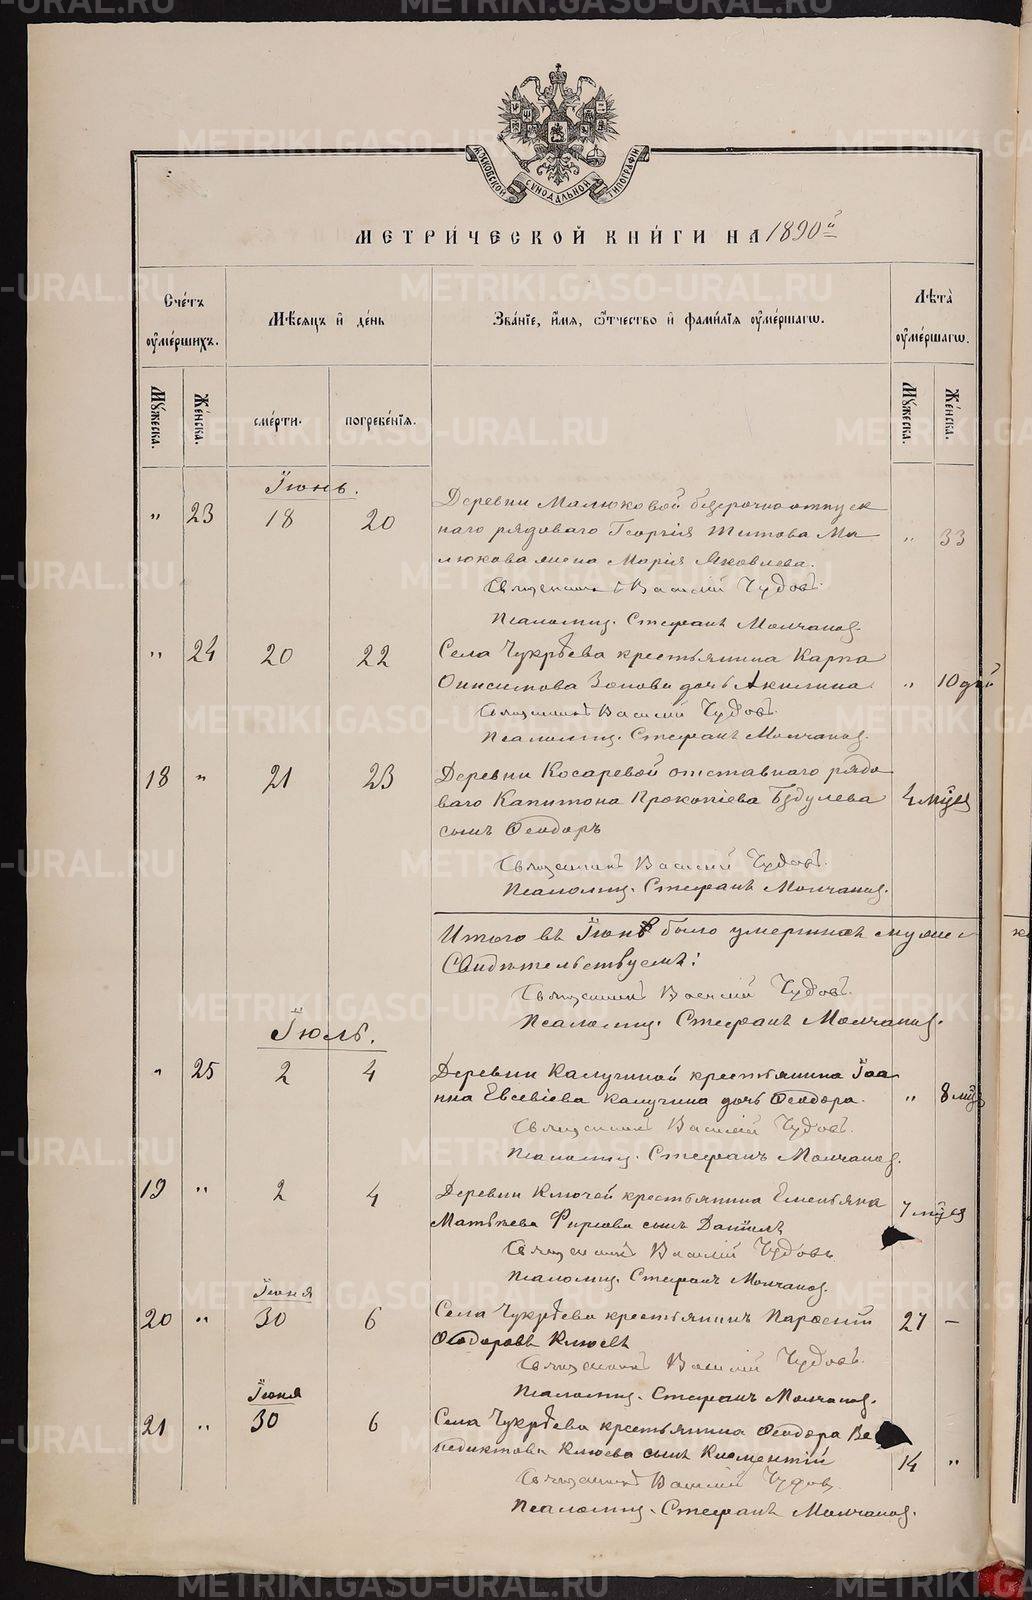 МОСКОВСКОЙ СѴНОДАЛЬНОЙ ТИПОГРАФІИ
МЕТРИ́ЧЕСКОЙ КНИ́ГИ НА 1890й
Сче́тъ ᲂумершихъ.
Мѣсяцъ и день
Зва́нїе, и́мя, ѻ҆тчество и фами́лїя ᲂумершагѡ.
Лѣта̀ ᲂумершагѡ.
Мужеска.
Женска.
смерти.
погребенїя.
Мужеска.
Женска.
Іюнь.
" 23 18 20 Деревни Малюковой безсрочноотпуск
наго рядоваго Георгія Титова Ма " 33
люкова жена Марія Яковлева.
Священникъ Василій Чудовъ.
Псаломщ. Стефанъ Молчанов.
" 24 20 22 Села Чукрѣева крестьянина Карпа
Онисимова Зонова дочь Акилина " 10 дней
Священникъ Василій Чудовъ.
Псаломщ. Стефанъ Молчанов.
18 " 21 23 Деревни Косаревой отставнаго рядо
ваго Капитона Прокопіева Будулева 4 мѣсяц
сынъ Ѳеодоръ
Священникъ Василій Чудовъ.
Псаломщ. Стефанъ Молчанов.
Итого въ Іюнѣ было умершихъ мужес
Свидѣтельствуемъ:
Священникъ Василій Чудовъ.
Псаломщ. Стефанъ Молчанов.
Іюль.
" 25 2 4 Деревни Калугиной крестьянина Іоа
нна Евсевіева Калугина дочь Ѳеодора. " 8 мѣс
Священникъ Василій Чудовъ.
Псаломщ. Стефанъ Молчанов.
19 " 2 4 Деревни Ключей крестьянина Емельяна
Матѣева Фирсова сынъ Даніилъ 7 мѣсяц
Священникъ Василій Чудовъ
Псаломщ. Стефанъ Молчанов.
Іюня
20 " 30 6 Села Чукрѣева крестьянинъ 27 –
Ѳеодоровъ Клюевъ
Священникъ Василій Чудовъ.
Псаломщ. Стефанъ Молчанов.
Іюня
21 " 30 6 Села Чукрѣева крестьянина Ѳеодора Ве
недиктова Клюева сынъ Климентій 14 "
Священникъ Василій Чудов
Псаломщ. Стефанъ Молчанов.
METRIKI.GASO-URAL.RU